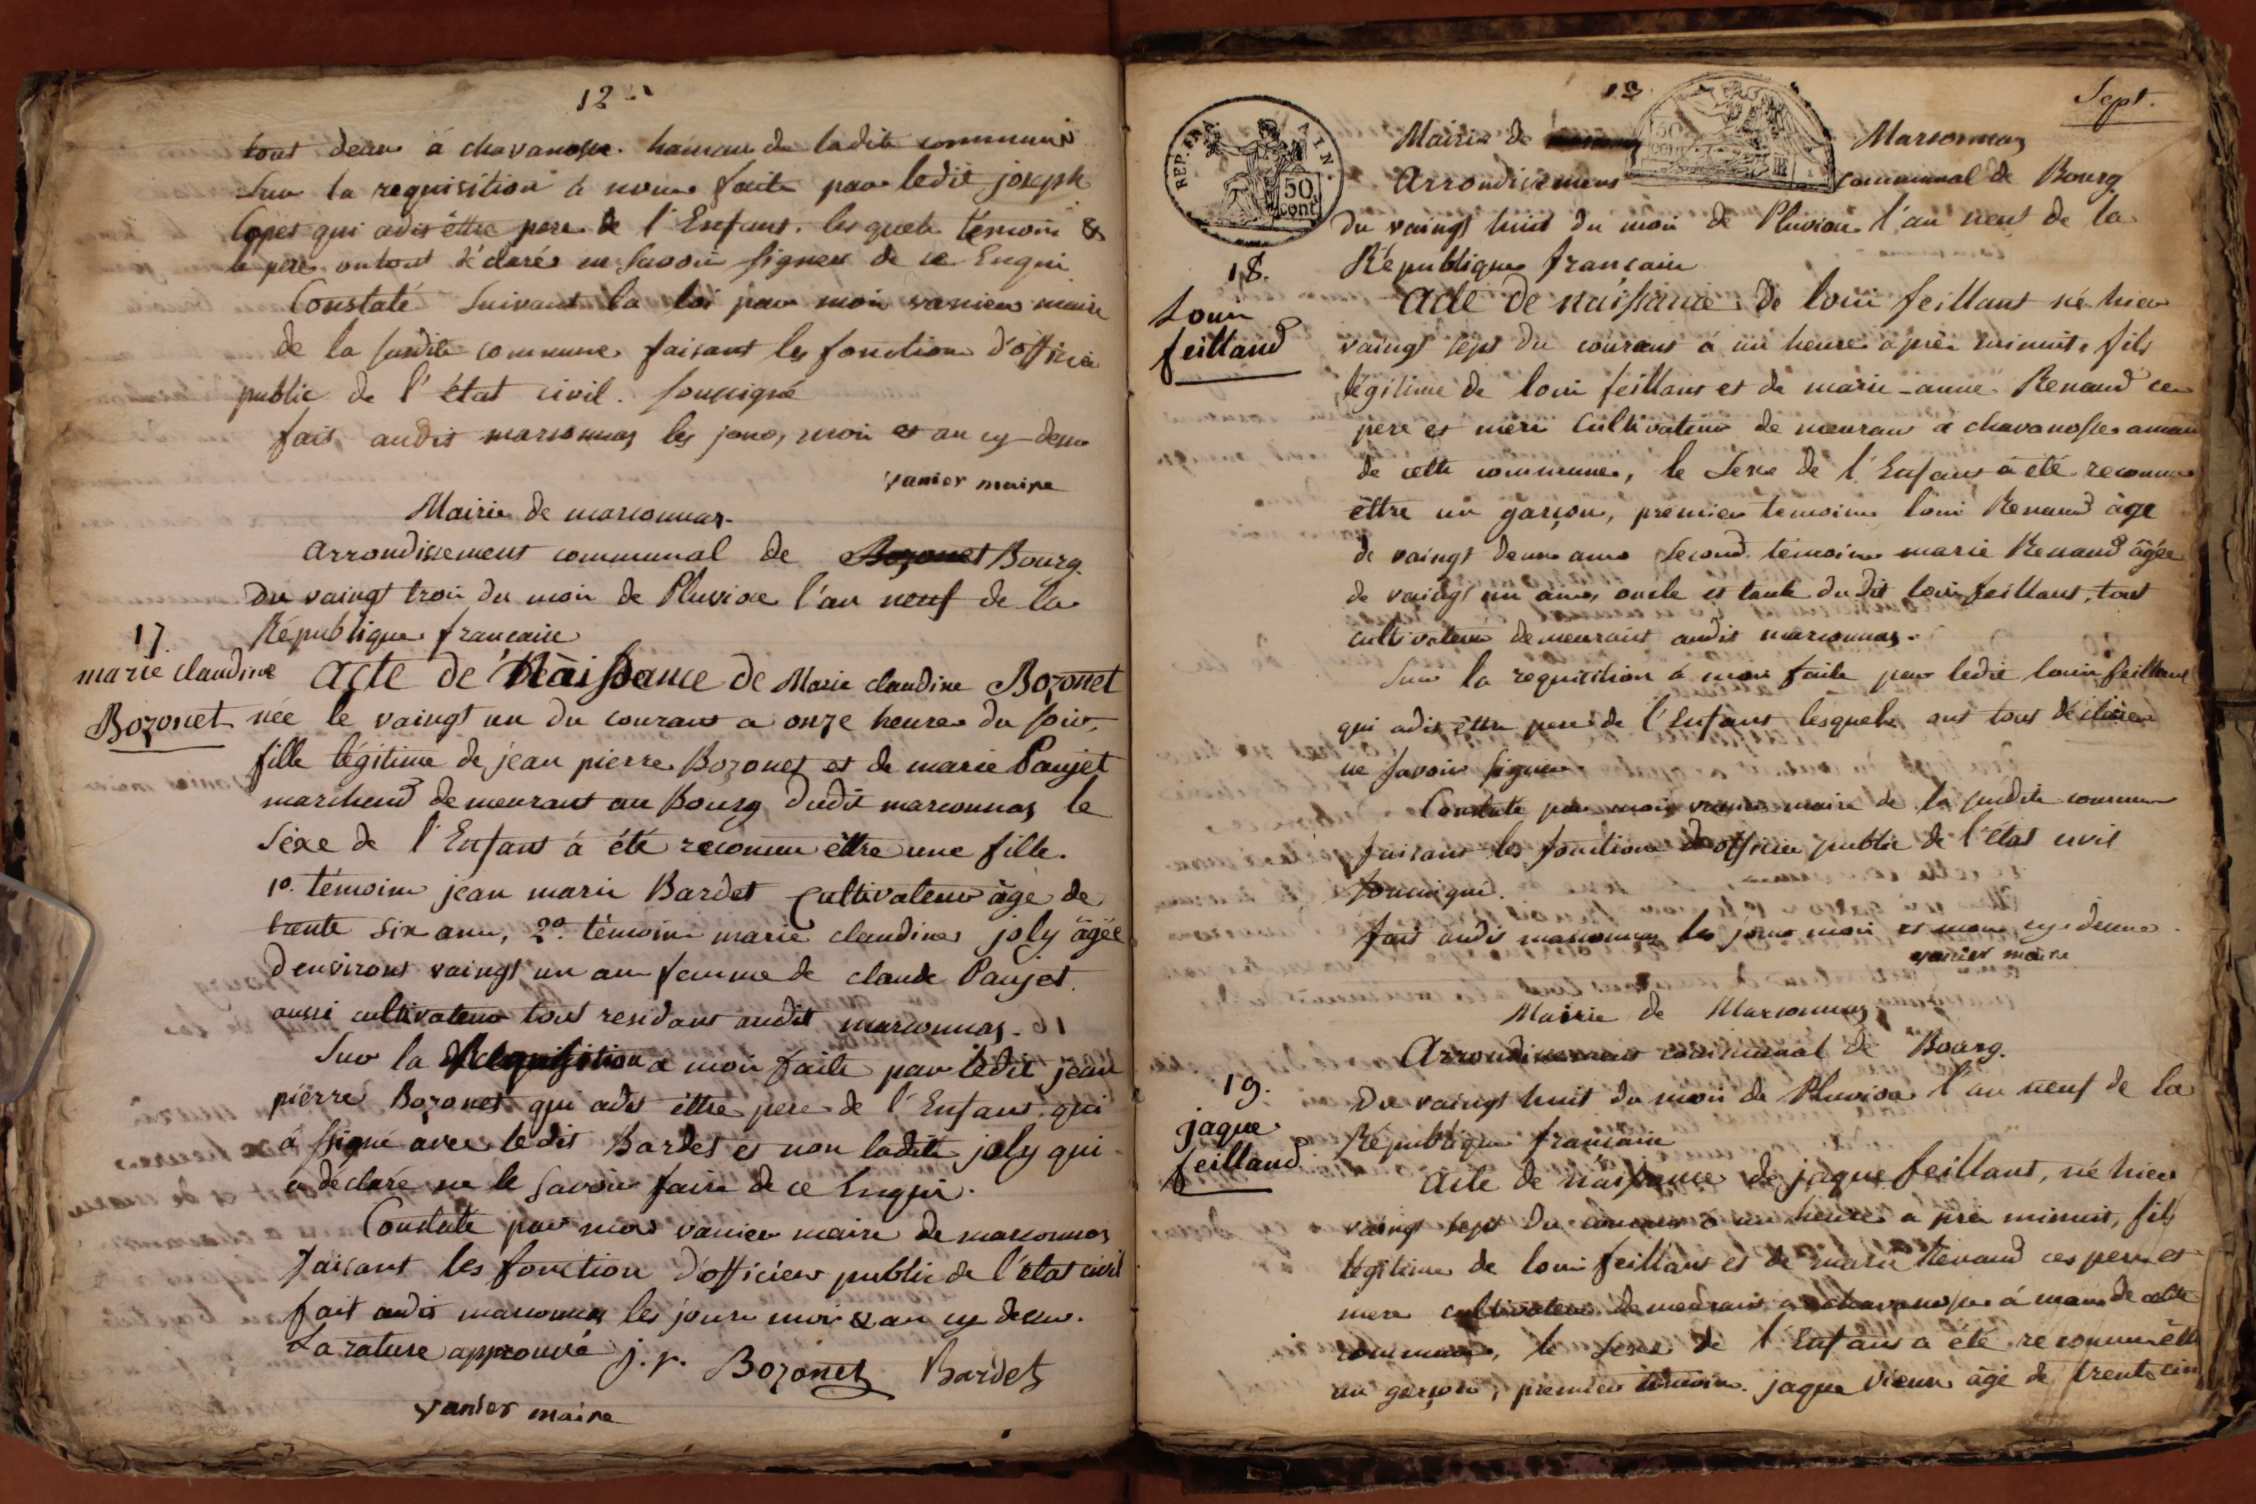 12
tous deux á chavanosse hameau de ladite commune
Sur la requisition á nous faite par ledit joseph
Copet qui adis êttre pere de l'Enfant. lesquels témoin &
le pere ont tout déclaré ne savoir signer de ce Enqui
Constaté Suivant la loi par moi vanier maire
de la susdite commune faisant les fonction d'officier
public de l'état civil. soussigné
fait audit marsonnas les jour, moi et an cy-dessu
vanier maire
Mairie de marsonnas.
arrondissement communal de Bozonet Bourg.
Du vaingt troi du moi de Pluviose l'an neuf de la
République française
17.
marie claudine
Bozonet
acte de Naissance de Marie claudine Bozonet
née le vaingt un du courant a onze heures du soir,
fille légitime de jean pierre Bozonet et de marie Paujet
marchand demeurant au Bourg dudit marsonnas le
Sexe de l'Enfant á été reconnu êttre une fille.
1º. témoin jean marie Bardet Cultivateur âgé de
trente six ans, 2º. témoin marie claudine joly âgée
d'environt vaingt un an femme de claude Paujet
aussi cultivateur tout residant audit marsonnas.
Sur la Requisition a moi faite par ledit jean
pierre Bozonet qui adit êttre pere de l'Enfant qui
á signé avec ledit Bardet et non ladite joly qui
a déclaré ne le savoir faire de ce Enqui.
Constaté par moi vanier maire de marsonnas
faisant les fonction d'officier public de l'état civil
fait audit marsonnas les jour moi & an cy dessu.
La rature approuvé j. p. Bozonet Bardet
vanier maire
13
Sept.
REP. FRA. AIN.
50 cent.
50 cent
Mairie de Marsonnas
arrondissement communal de Bourg
Du vaingt huit du moi de Pluviose l'an neuf de la
République française
18.
Louis
feilland
acte de naissance de loui feillant né hier
vaingt sept du courant á un heure aprèr minuit, fils
légitime de loui feillant et de marie-anne Renaud ce
pere et mere Cultivateur demeurant á chavanosse amau
de cette commune, le Sexe de l'Enfant á été reconnu
êttre un garson, premier temoin loui Renaud âgé
de vaingt deux ans Second témoin marie Renaud âgée
de vaingt un ans, oncle et tante dudit loui feillant, tout
cultivateur demeurant audit marsonnas.
Sur la requisition á moi faite par ledit loui feillant
qui adit êttre pere de l'Enfant lesquels ont tous déclaré
ne savoir signer
Constaté par moi vanier maire de la susdite commune
faisant les fonction d'officier public de l'état civil
soussigné.
fait audit marsonnas les jour moi et an cy-dessu.
vanier maire
Mairie de Marsonnas
Arrondissement communal de Bourg.
19.
jaque
feilland
Du vaingt huit du moi de Pluviose l'an neuf de la
République française
acte de naissance de jaque feillant, né hier
vaingt sept du courant á un heure a prèr minuit, fils
légitime de loui feillant et de marie Renaud ces pere et
mere cultivateur demeurant a chavanosse á mau de cette
commune, le sexe de l'Enfant a été reconnu êttre
un garson, premier témoin jaque vieux âgé de trente cin